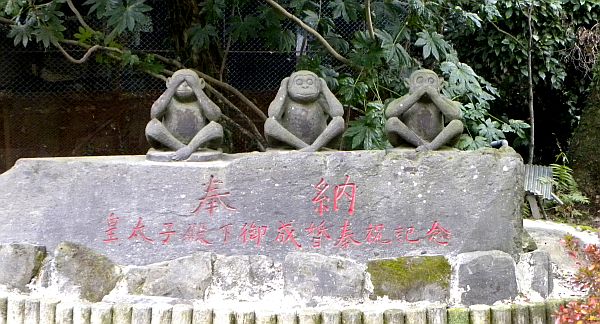 奉納
皇太子殿下御成婚奉祝記念